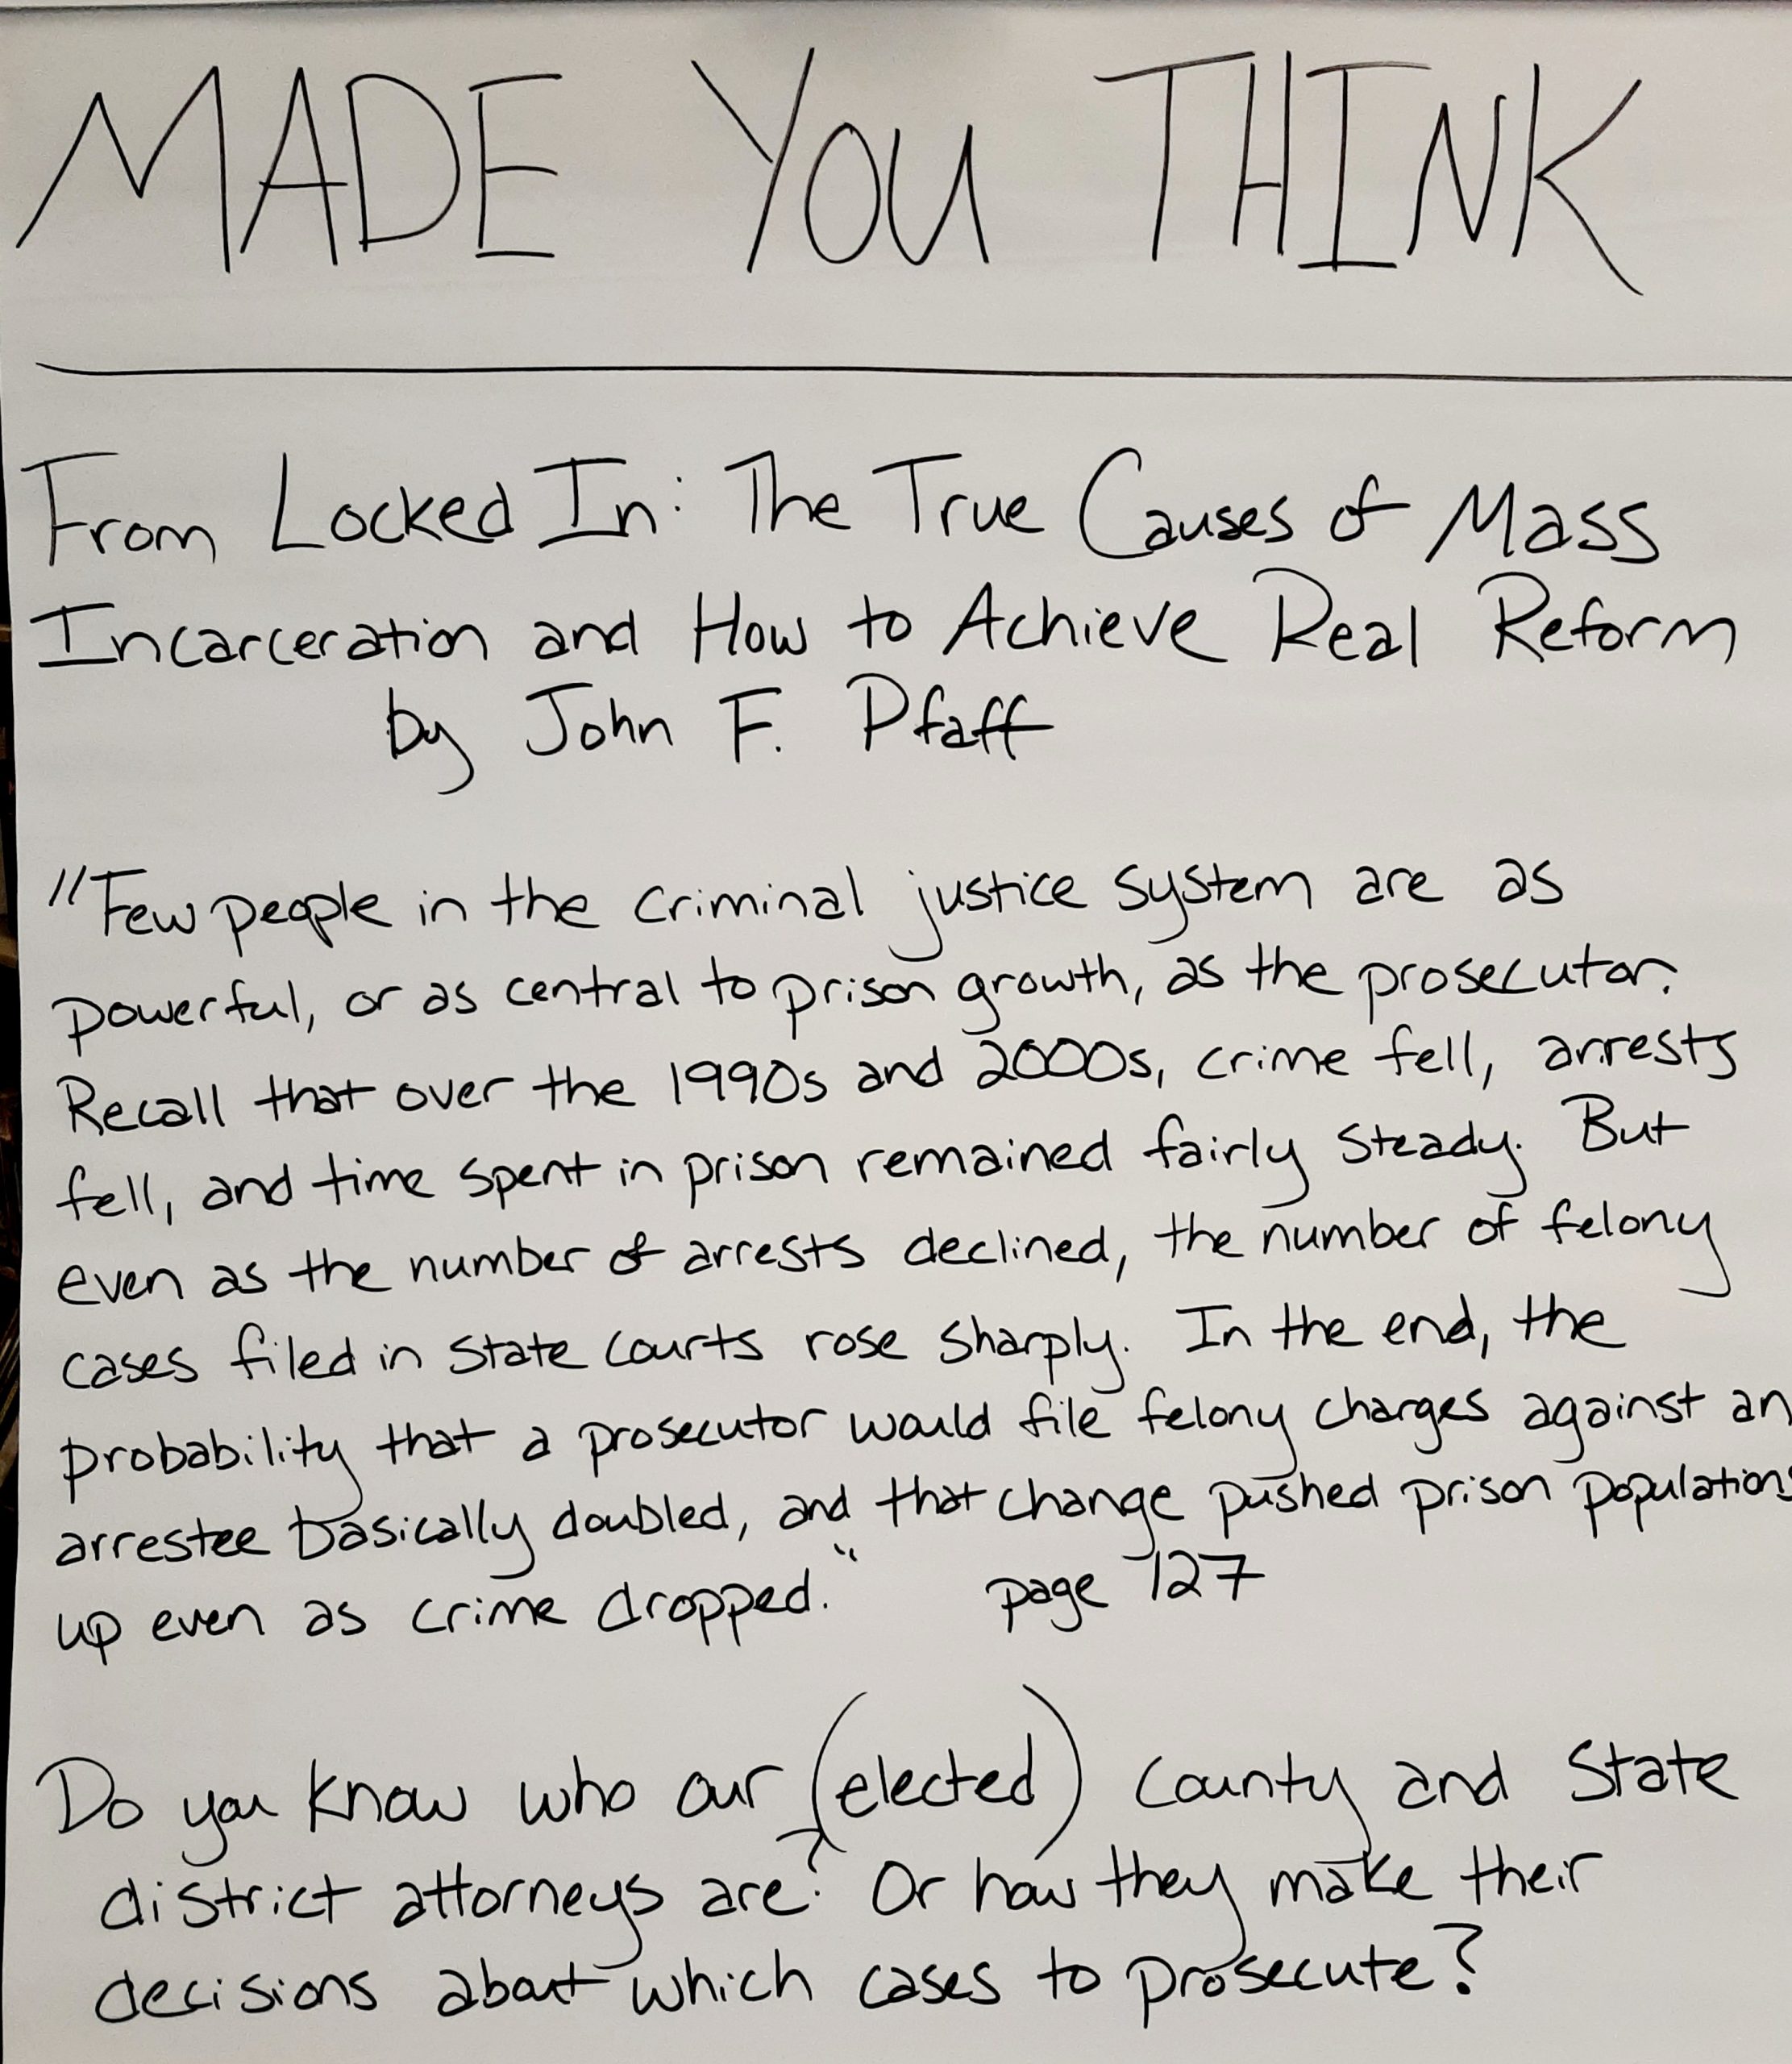 MADE YOU THINK
From Locked In: The True Causes of Mass
Incarceration and How to Achieve Real Reform
by John F. Pfaff
"Few people in the criminal justice system are as
powerful, or as central to prison growth, as the prosecutor.
Recall that over the 1990s and 2000s, crime fell, arrests
fell, and time spent in prison remained fairly steady. But
even as the number of arrests declined, the number of felony
cases filed in state courts rose sharply. In the end, the
probability that a prosecutor would file felony charges against an
arrestee basically doubled, and that change pushed prison populations
up even as crime dropped." page 127
Do you know who our (elected) county and state
district attorneys are? Or how they make their
decisions about which cases to prosecute?